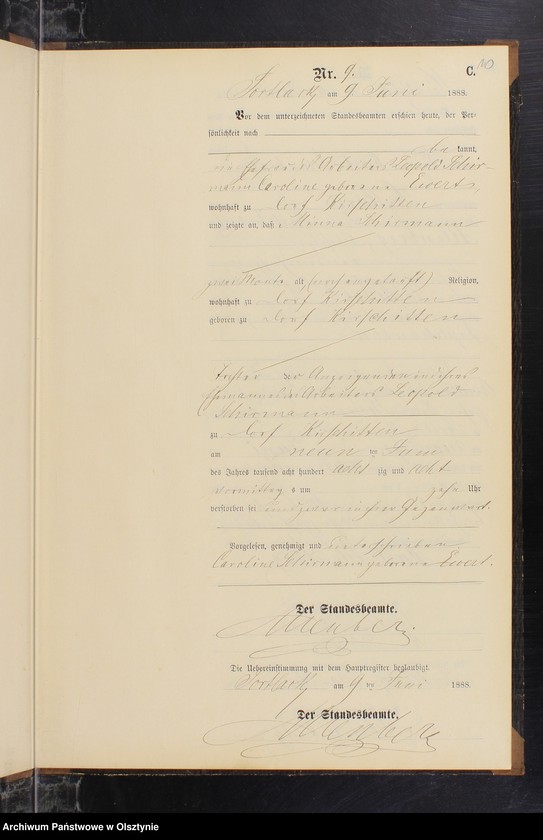 10
Nr. 9. C.
am 9 Juni 1888.
Vor dem unterzeichneten Standesbeamten erschien heute, der Per-
sönlichkeit nach
be kannt,
die Ehefrau des Arbeiters Leopold Schir-
mann Caroline geborene Ewert,
wohnhaft zu Dorf Kirschitten
und zeigte an, daß Minna Schirmann
zwei Monate alt, (noch ungetauft) Religion,
wohnhaft zu Dorf Kirschitten
geboren zu Dorf Kirschitten
Tochter der Anzeigenden und ihres
Ehemannes des Arbeiters Leopold
Schirmann
zu Dorf Kirschitten
am neun ten Juni
des Jahres tausend acht hundert acht zig und acht
Vormittag s um zehn Uhr
verstorben sei und zwar in ihrer Gegenwart.
Vorgelesen, genehmigt und unterschrieben
Caroline Schirmann geborene Ewert.
Der Standesbeamte.
Die Uebereinstimmung mit dem Hauptregister beglaubigt.
am 9 ten Juni 1888.
Der Standesbeamte.
Archiwum Państwowe w Olsztynie